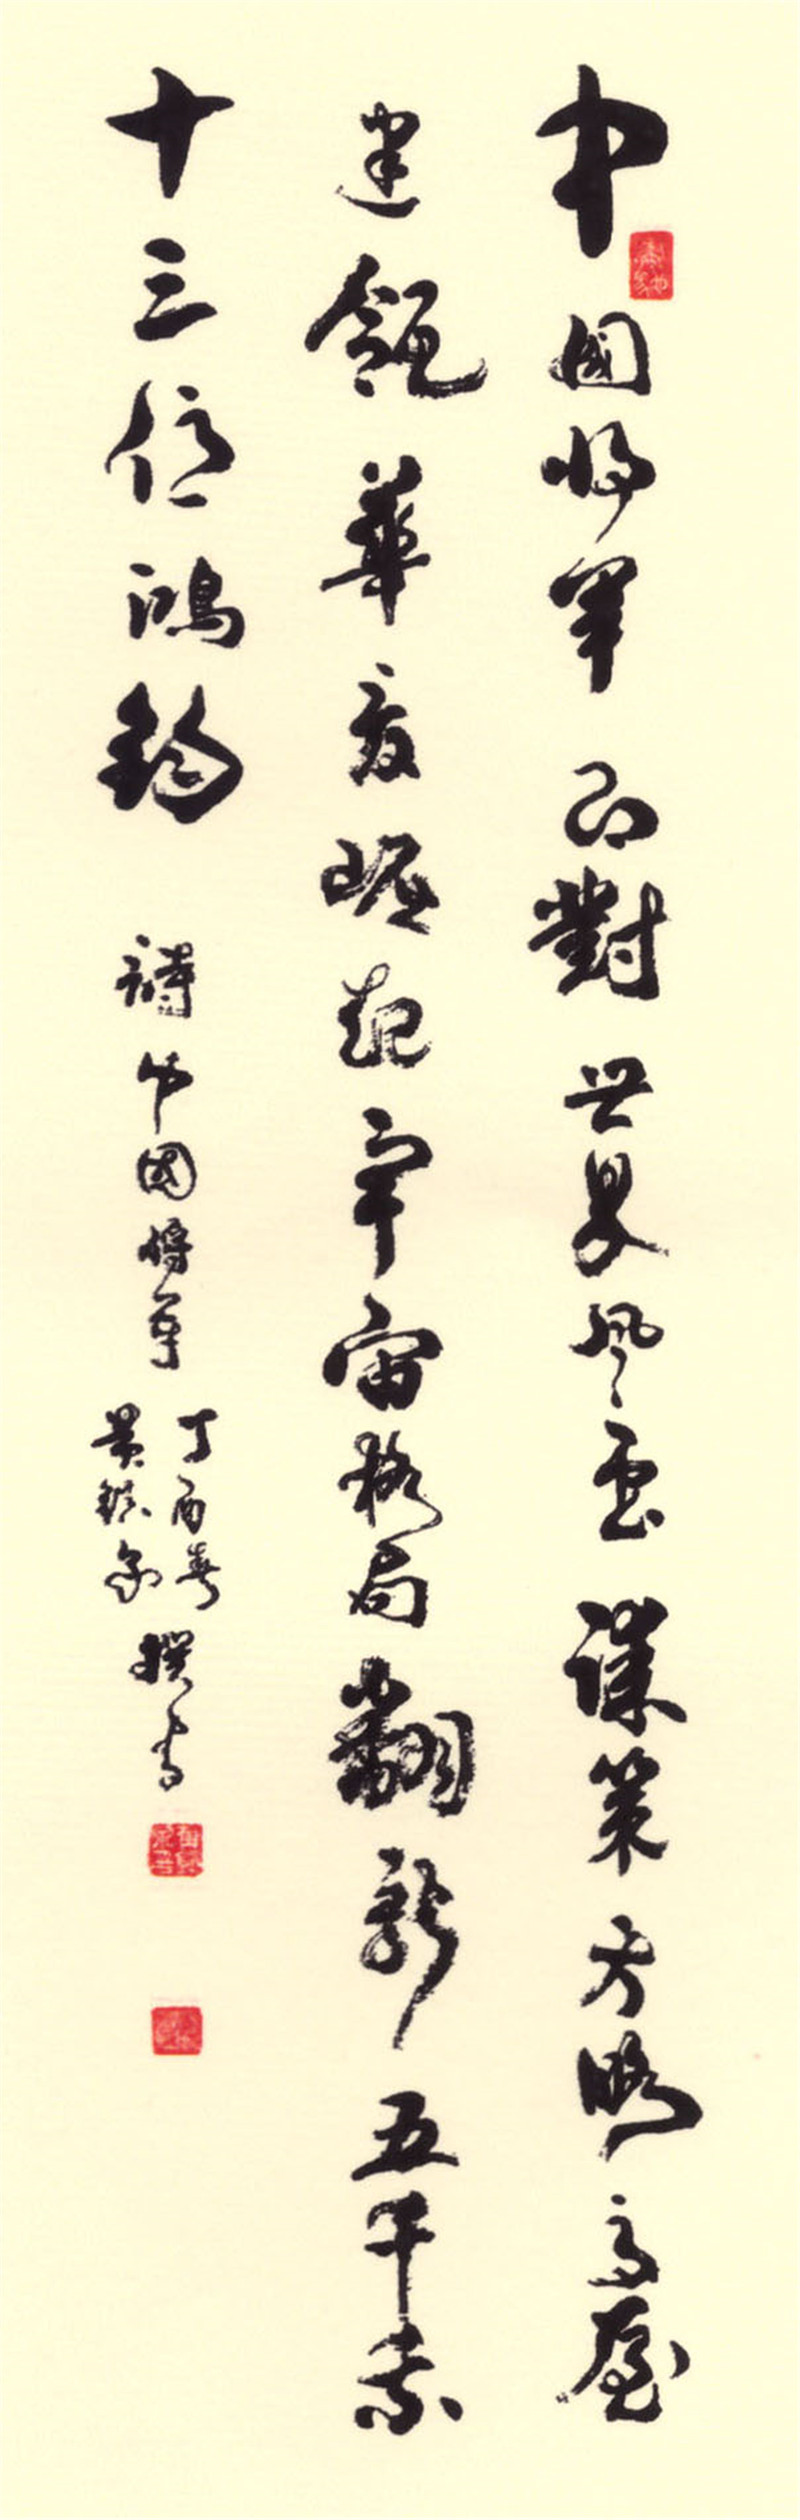 中國將軍 面對世界風雲 謀策方略 高屋
建瓴 華夏崛起 宇宙格局 翻新五千年
十三億鴻鈞 詩 中國將軍
丁酉春
撰書